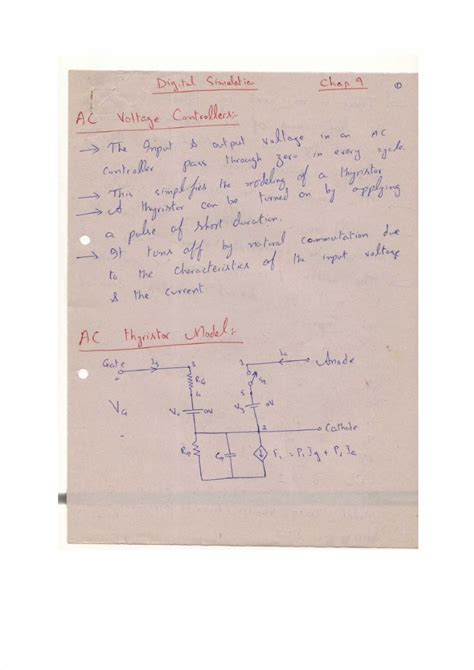 Digital Simulation Chap 9 ①
AC Voltage Controllers:-
→ The Input & output voltage in an AC
controller pass through zero in every cycle.
→ This simplifies the modeling of a thyristor
→ A thyristor can be turned on by applying
a pulse of short duration.
→ It turns off by natural commutation due
to the characteristics of the input voltage
& the current
AC thyristor Model:-
Gate Ig 3 1 Ia Anode
RG S1
4 5
VG Vx 0V Vy 0V
2 Cathode
RT CT F1 = P1 Ig + P2 Ia